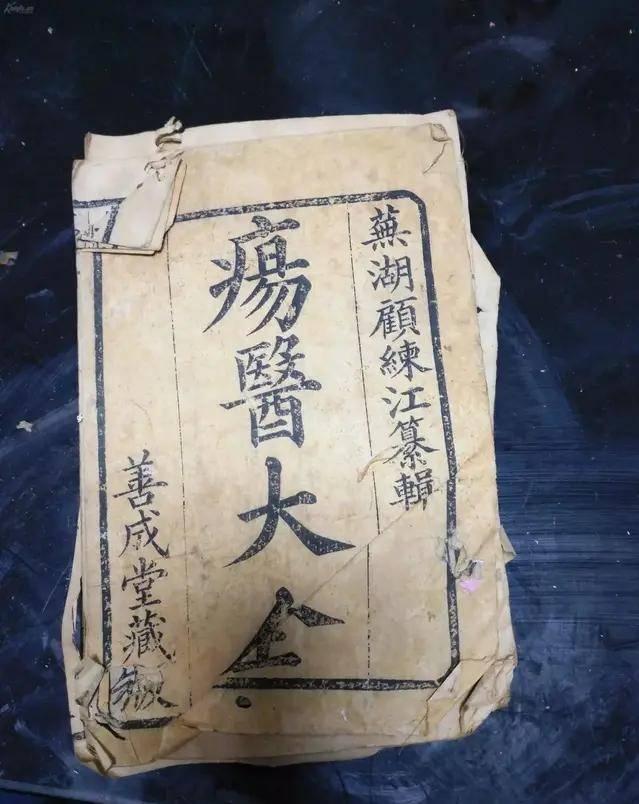 蕪湖顧練江纂輯
瘍醫大全
善成堂藏板